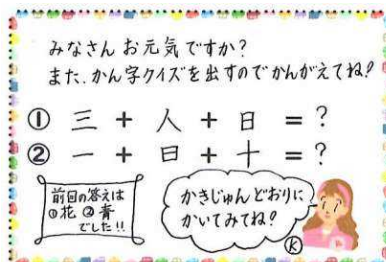 みなさんお元気ですか?
また、かん字クイズを出すのでかんがえてね!
① 三 + 人 + 日 = ?
② 一 + 日 + 十 = ?
前回の答えは
①花 ②青
でした!!
かきじゅんどおりに
かいてみてね!
K